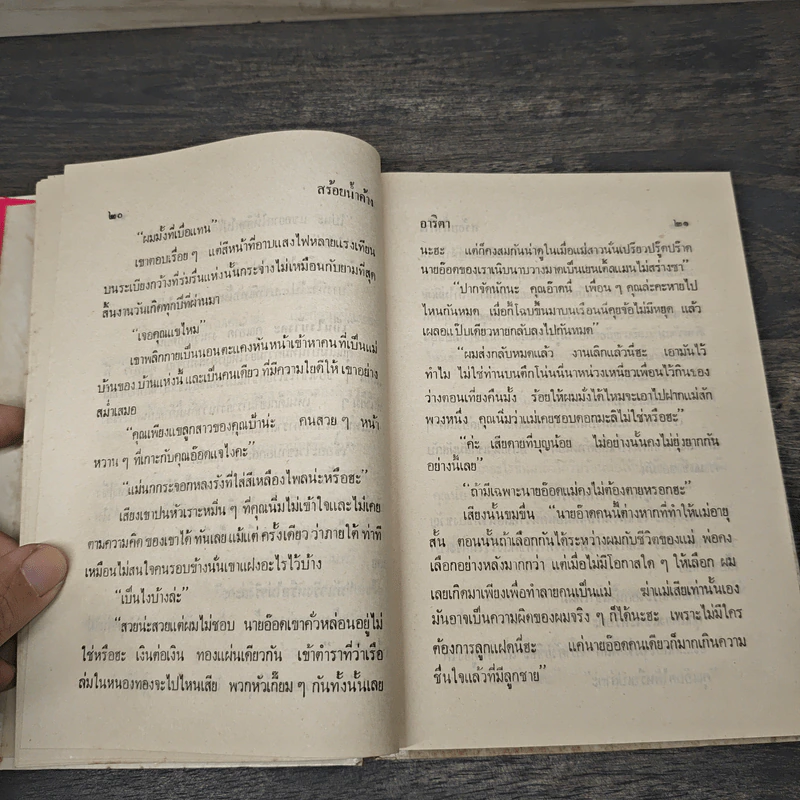 ๒๐
สร้อยน้ำค้าง
“ผมมั้งที่เบื่อแทน”
เขาตอบเรื่อย ๆ แต่สีหน้าที่อาบแสงไฟหลายแรงเทียน
บนระเบียงกว้างที่ร่มรื่นแห่งนั้นกระจ่างไม่เหมือนกับยามที่สุด
สิ้นงานวันเกิดทุกปีที่ผ่านมา
“เจอคุณแขไหม”
เขาพลิกกายเป็นนอนตะแคงหันหน้าเข้าหาคน ที่เป็นแม่
บ้านของ บ้านแห่งนี้ และเป็นคนเดียว ที่มีความใยดีให้ เขาอย่าง
สม่ำเสมอ
“คุณเพียงแขลูกสาวของคุณป้าน่ะ คนสวย ๆ หน้า
หวาน ๆ ที่เกาะกับคุณอ๊อดแจไงคะ”
“แม่นกกระจอกหลงรังที่ใส่สีเหลืองไพลน่ะหรือฮะ”
เสียงเขาปนหัวเราะหมิ่น ๆ ที่คุณนิ่มไม่เข้าใจและไม่เคย
ตามความคิด ของเขาได้ ทันเลย แม้แต่ ครั้งเดียว ว่าภายใต้ ท่าที
เหมือนไม่สนใจคนรอบข้างนั่นเขาแฝงอะไรไว้บ้าง
“เป็นไงบ้างล่ะ”
“สวยน่ะสวยแต่ผมไม่ชอบ นายอ๊อดเขาคั่วหล่อนอยู่ไม่
ใช่หรือฮะ เงินต่อเงิน ทองแผ่นเดียวกัน เข้าตำราที่ว่าเรือ
ล่มในหนองทองจะไปไหนเสีย พวกหัวเกี๊ยม ๆ กันทั้งนั้นเลย
อาริตา
๒๑
นะฮะ แต่ก็คงสมกันน่าดูในเมื่อแม่สาวนั่นเปรียวปรู๊ดปร๊าด
นายอ๊อดของเราเนิบนาบวางมาดเป็นเยนเติ้ลแมนไม่สร่างซา”
“ปากจัดนักนะ คุณอ๊าดนี่ เพื่อน ๆ คุณล่ะคะหายไป
ไหนกันหมด เมื่อกี้โฉบขึ้นมาบนเรือนนี่คุยจ้อไม่มีหยุด แล้ว
เผลอแป๊บเดียวหายกลับลงไปกันหมด”
“ผมส่งกลับหมดแล้ว งานเลิกแล้วนี่ฮะ เอามันไว้
ทำไม ไม่ใช่ท่านบนตึกโน่นนี่นาหน่วงเหนี่ยวเพื่อนไว้กินของ
ว่างตอนเที่ยงคืนมั้ง ร้อยให้ผมมั่งได้ไหมจะเอาไปฝากแม่สัก
พวงหนึ่ง คุณนิ่มว่าแม่เคยชอบดอกมะลิไม่ใช่หรือฮะ”
“ค่ะ เสียดายที่บุญน้อย ไม่อย่างนั้นคงไม่ยุ่งยากกัน
อย่างนี้เลย”
“ถ้ามีเฉพาะนายอ๊อดแม่คงไม่ต้องตายหรอกฮะ”
เสียงนั้นขมขื่น “นายอ๊อดคนนี้ต่างหากที่ทำให้แม่อายุ
สั้น ตอนนั้นถ้าเลือกกันได้ระหว่างผมกับชีวิตของแม่ พ่อคง
เลือกอย่างหลังมากกว่า แต่เมื่อไม่มีโอกาสใด ๆ ให้เลือก ผม
เลยเกิดมาเพียงเพื่อทำลายคนเป็นแม่ ฆ่าแม่เสียเท่านั้นเอง
มันอาจเป็นความผิดของผมจริง ๆ ก็ได้นะฮะ เพราะไม่มีใคร
ต้องการลูกแฝดนี่ฮะ แค่นายอ๊อดคนเดียวก็มากเกินความ
ชื่นใจแล้วที่มีลูกชาย”